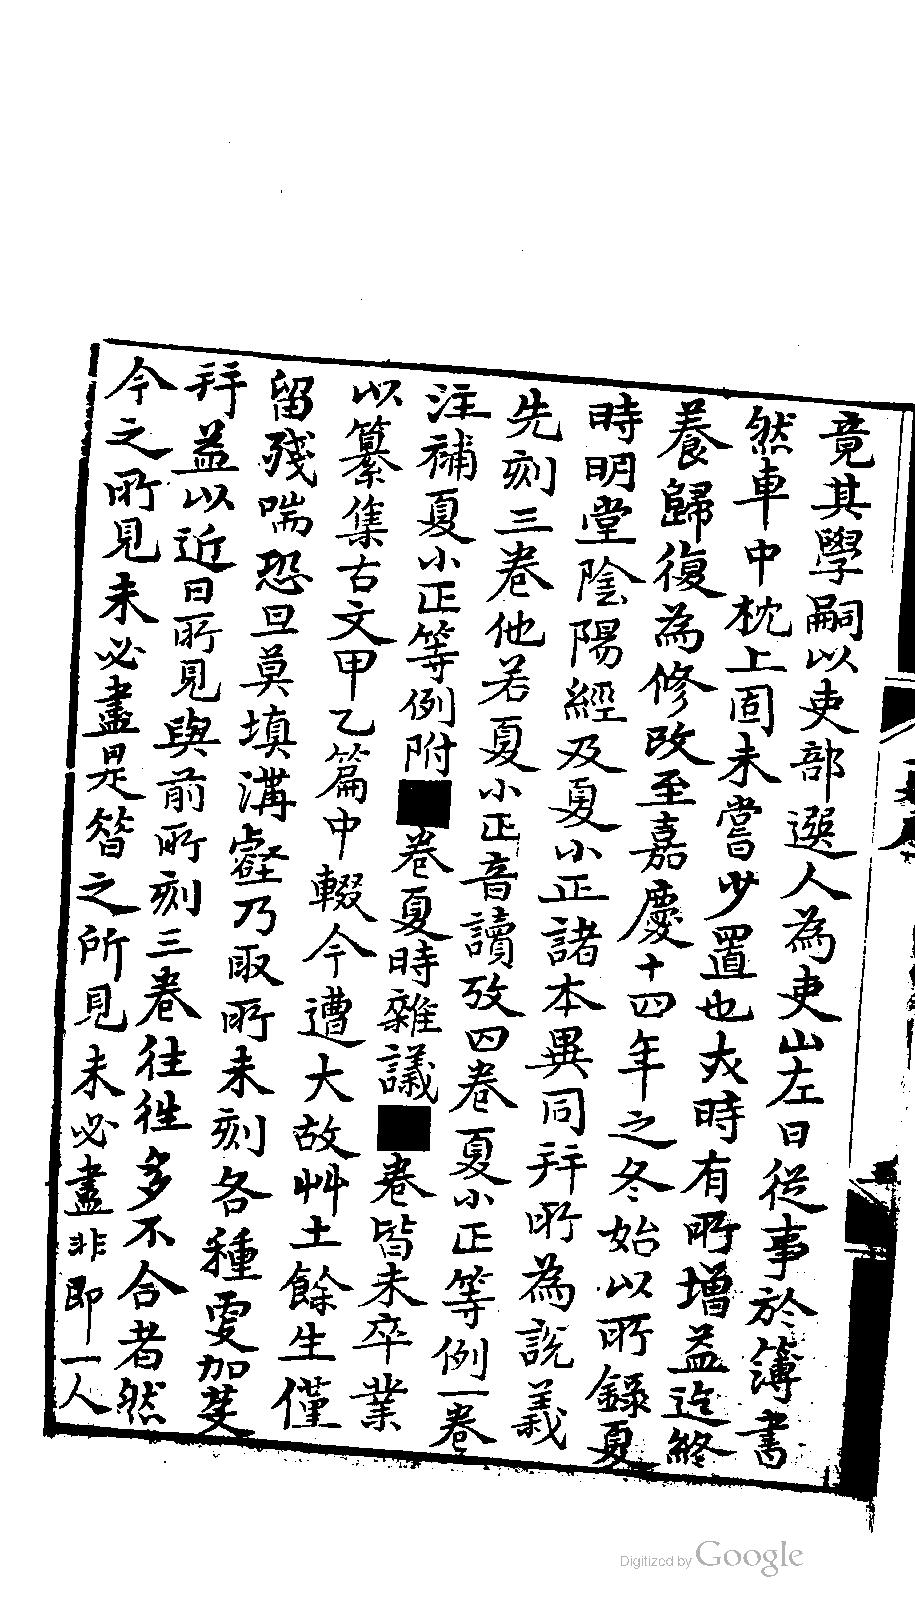 竟其學嗣以吏部選人為吏山左日從事於簿書
然車中枕上固未嘗少置也夾時有所增益迄終
養歸復為修改至嘉慶十四年之冬始以所錄夏
時明堂陰陽經及夏小正諸本異同拜所為說義
先刻三卷他若夏小正音讀攷四卷夏小正等例一卷
注補夏小正等例附■卷夏時雜議■卷皆未卒業
以纂集古文甲乙篇中輟今遭大故艸土餘生僅
留殘喘恐旦莫填溝壑乃取所未刻各種更加芟
拜益以近日所見與前所刻三卷往往多不合者然
今之所見未必盡是昔之所見未必盡非即一人
Digitized by Google